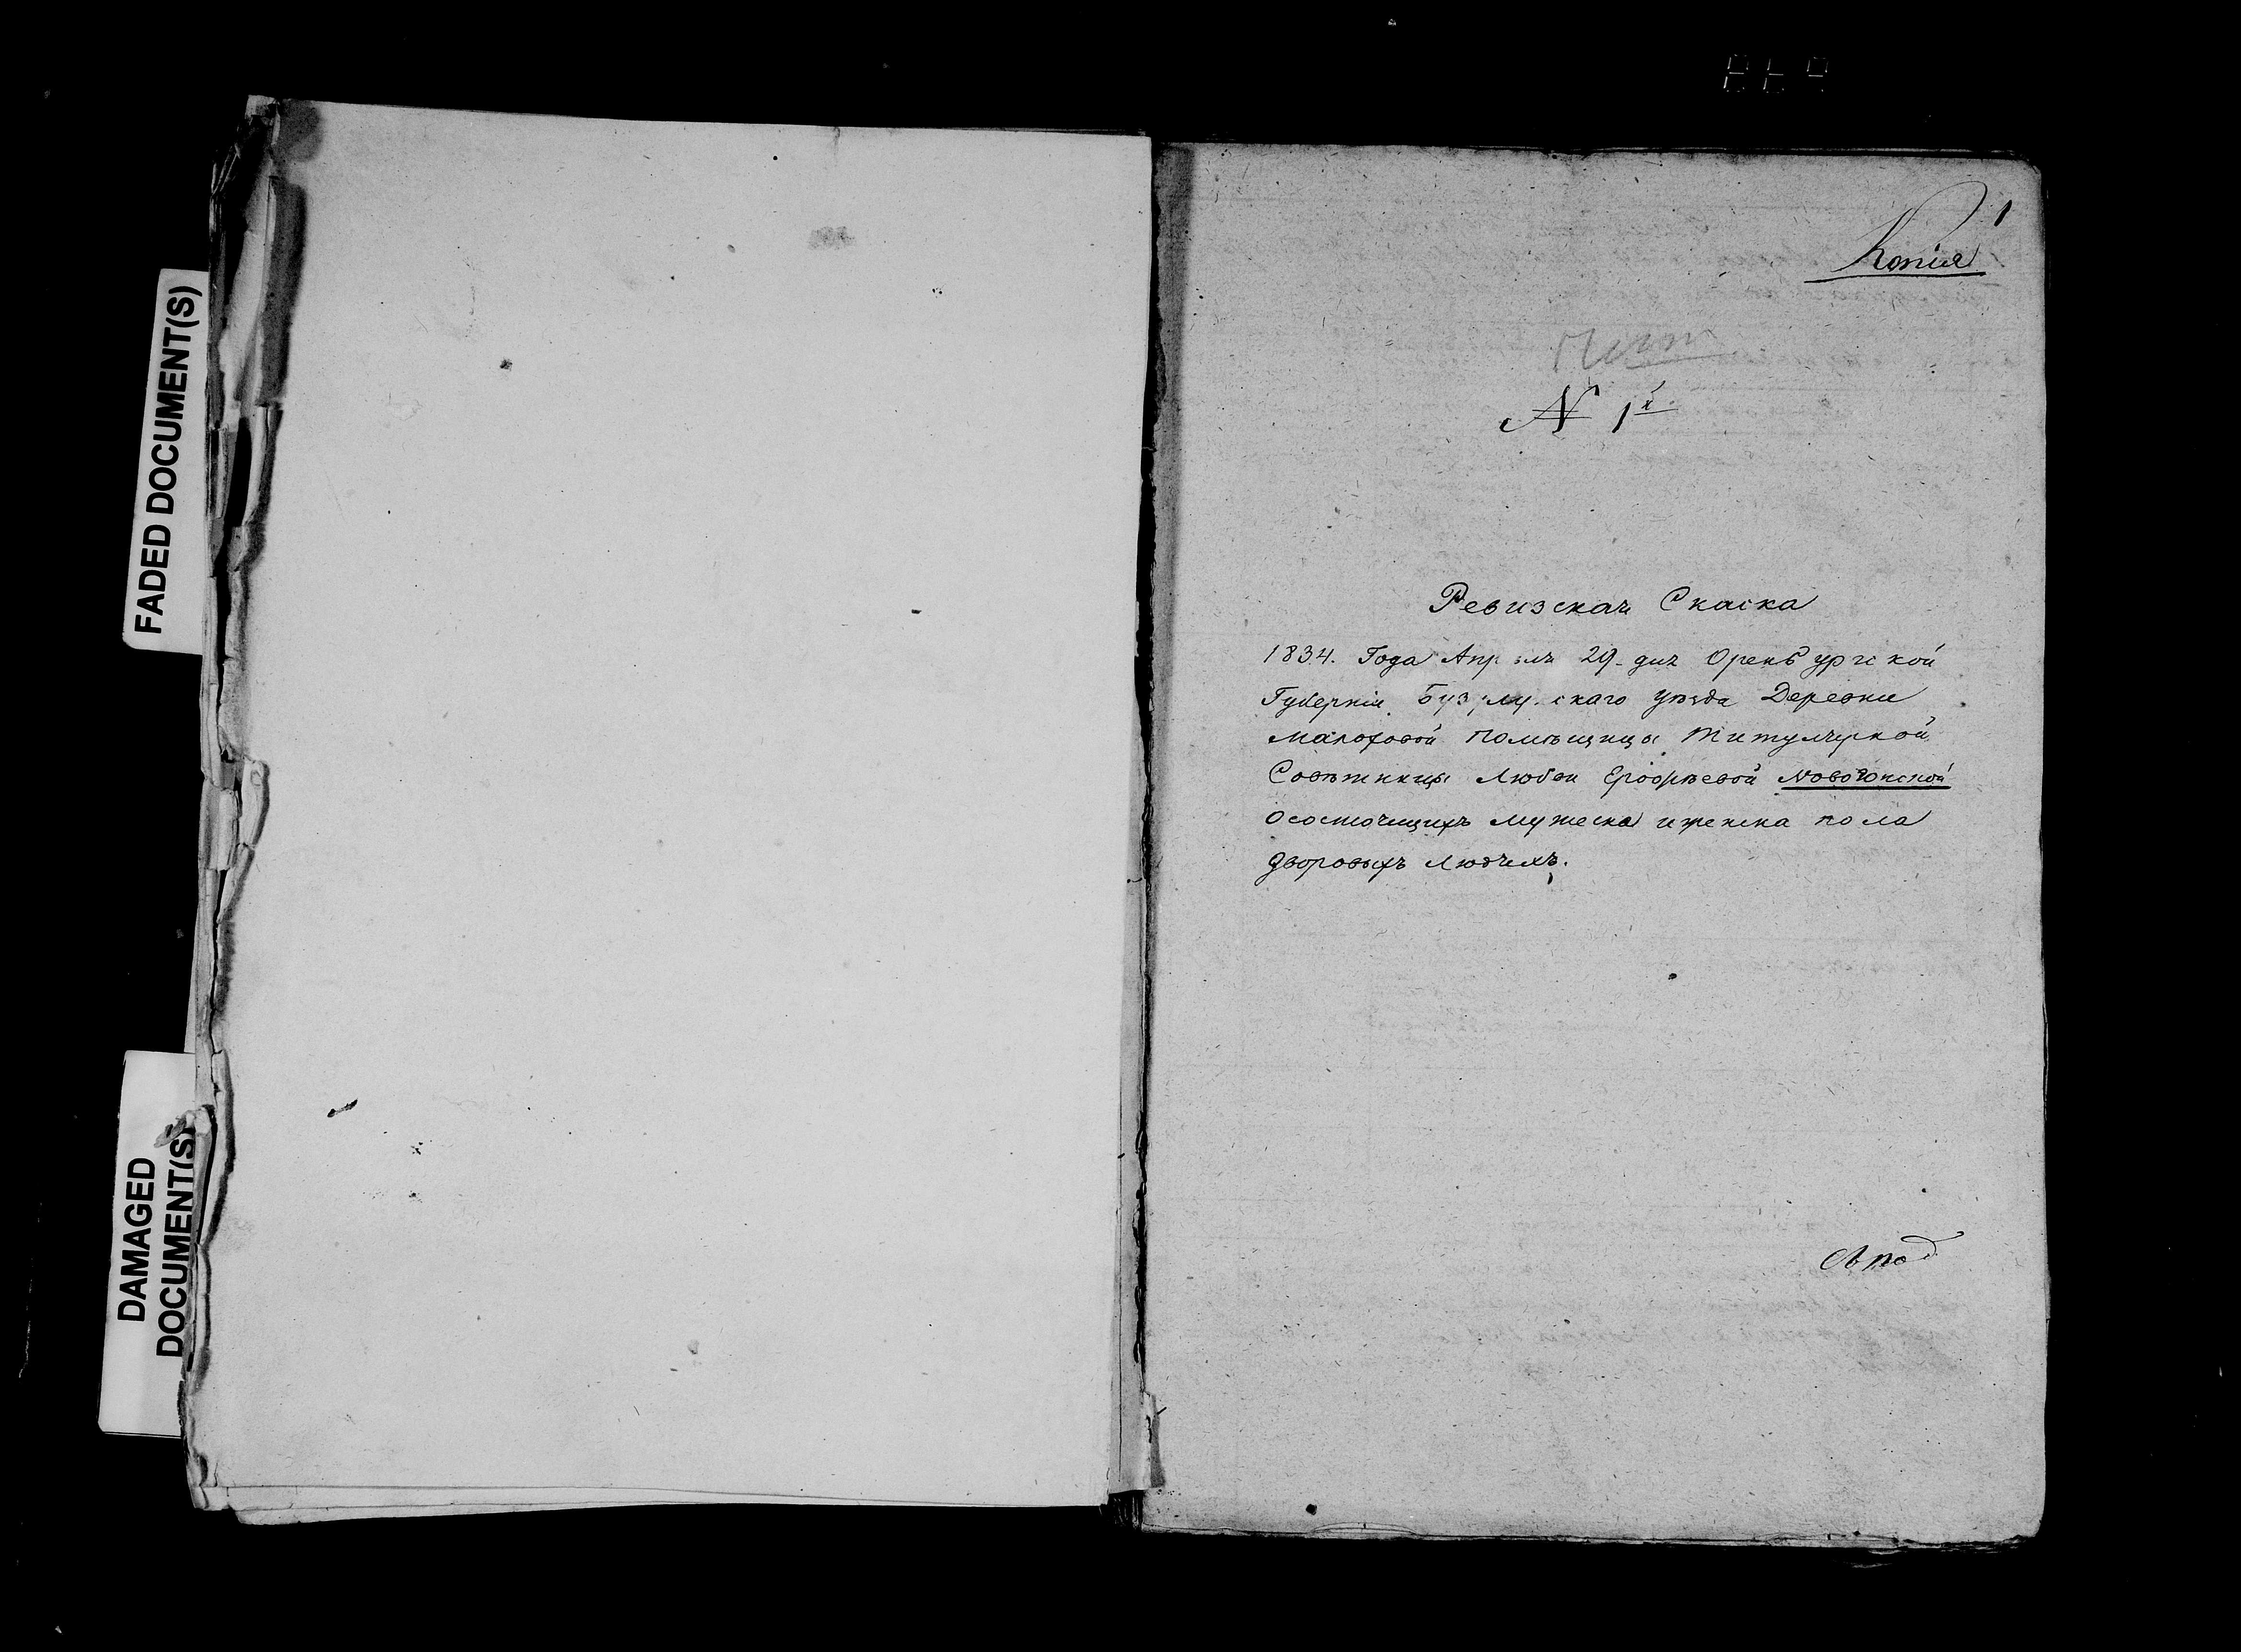 FADED DOCUMENT(S)
DAMAGED
DOCUMENT(S)
1
Копія
N 1й
Ревизская Скаска
1834. Года Апреля 29. дня Оренбургской
Губерніи Бузулускаго уѣзда Деревни
Малоховой помѣщицы Титулярной
Совѣтницы Любви Ерофѣевой
осостоящихъ мужеска иженска пола
дворовыхъ людяхъ.